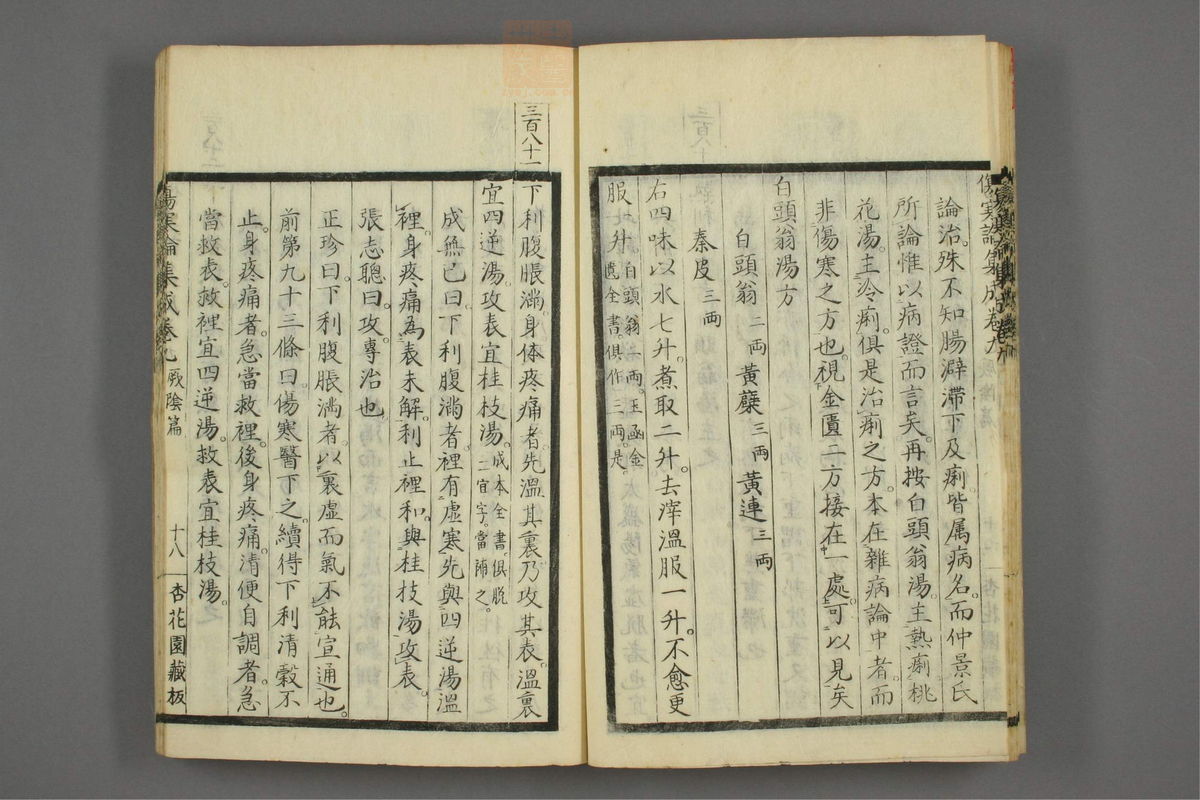 論治。殊不知腸澼滯下及痢。皆属病名。而仲景氏
所論惟以病證而言矣。再按白頭翁湯。主熱痢。桃
花湯。主冷痢。俱是治痢之方。本在雜病論中者。而
非傷寒之方也。視金匱二方接在一處。可以見矣
白頭翁湯方
白頭翁二両黃蘗三両黃連三両
秦皮三両
右四味以水七升。煮取二升。去滓溫服一升。不愈更
服一升。白頭翁二両。玉函金
匱全書。俱作三両。是。
三百八十一
下利腹脹満。身体疼痛者。先溫其裏。乃攻其表。溫裏
宜四逆湯。攻表宜桂枝湯。成本全書。俱脱
二宜字。當補之。
成無己曰。下利腹満者。裡有虚寒。先與四逆湯溫
裡。身疼痛為表未解。利止裡和。與桂枝湯攻表。
張志聰曰。攻。專治也。
正珍曰。下利腹脹満者。以裏虚而氣不能宣通也。
前第九十三條曰。傷寒醫下之。續得下利清穀不
止。身疼痛者。急當救裡。後身疼痛。清便自調者。急
當救表。救裡宜四逆湯。救表宜桂枝湯。
傷寒論集成卷九 厥陰篇 十八 杏花園藏板